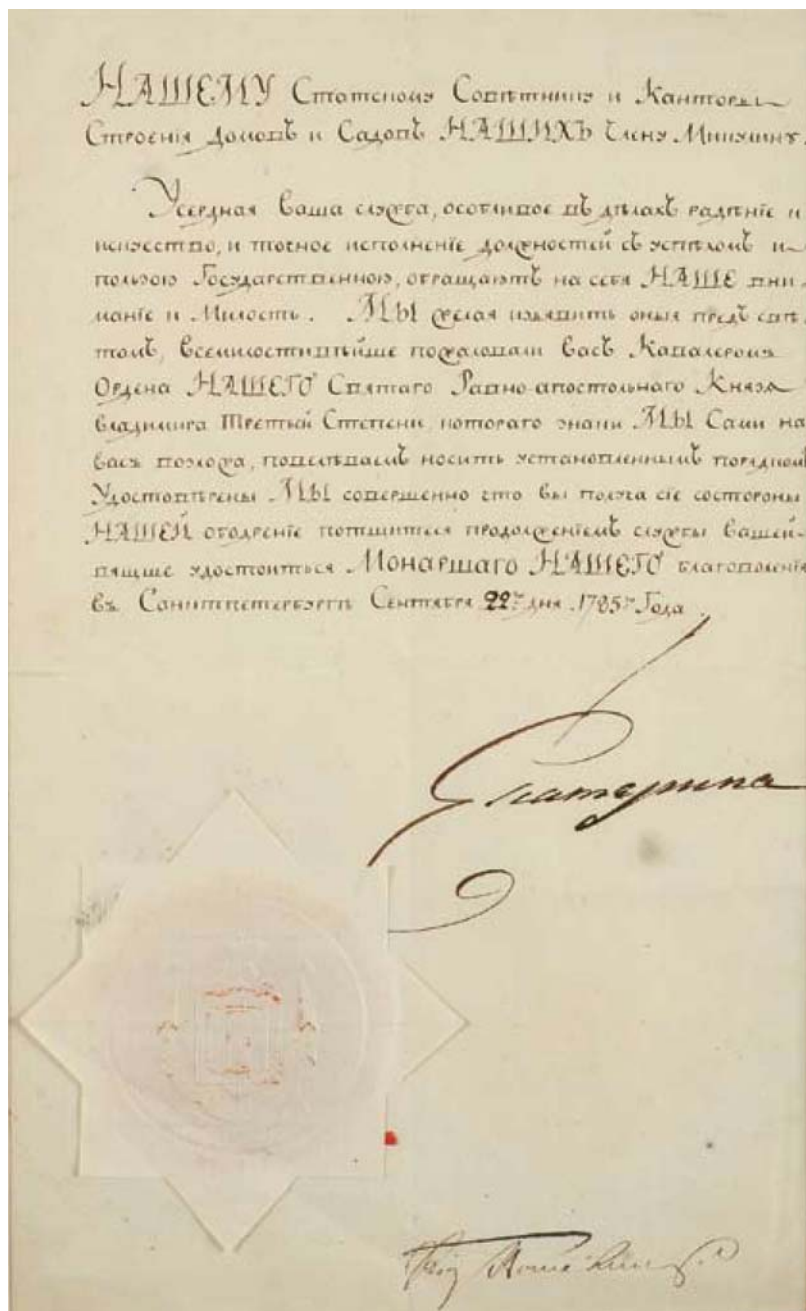 НАШЕМУ Статскому Советнику и Канторы
Строенiя Домовъ и Садовъ НАШИХЪ Члену Микулину.
Усердная ваша служба, особливое въ дѣлахъ радѣнiе и
искуство, и точное исполненiе должностей съ успѣхомъ и
пользою Государственною, обращаютъ на себя НАШЕ вни
манiе и Милость. МЫ желая изъявить оныя предъ свѣ
томъ, всемилостивѣйше пожаловали васъ Кавалеромъ
Ордена НАШЕГО Святаго Равно апостольнаго Князя
владимира Третьей Степени, котораго знаки МЫ Сами на
васъ возложа, повелѣваемъ носить установленнымъ порядкомъ
Удостовѣрены МЫ совершенно что вы получа сiе состороны
НАШЕЙ ободренiе потщитеся продолженiемъ службы вашей
вящше удостоиться Монаршаго НАШЕГО благоволенiя
въ Санктпетербургѣ Сентября 22го дня 1785го Года.
Екатерина